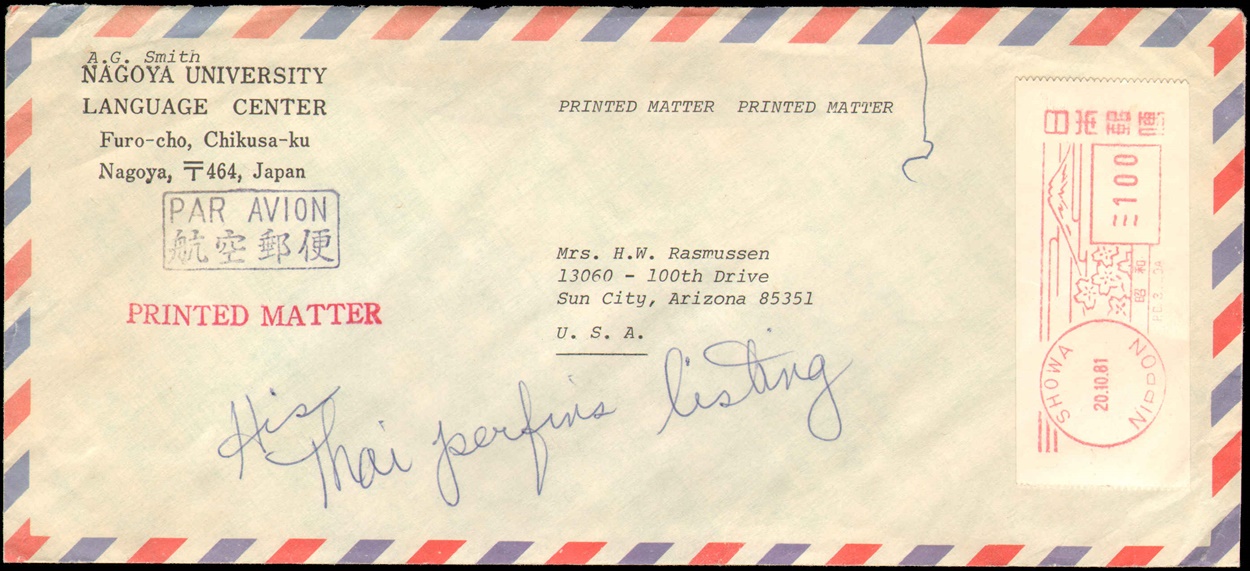 A.G. Smith
NAGOYA UNIVERSITY
LANGUAGE CENTER
Furo-cho, Chikusa-ku
Nagoya, 〒464, Japan
PAR AVION
航空郵便
PRINTED MATTER
PRINTED MATTER PRINTED MATTER
Mrs. H.W. Rasmussen
13060 - 100th Drive
Sun City, Arizona 85351
U. S. A.
His
Thai perfins listing
日本郵便
100
昭和
SHOWA
NIPPON
20.10.81